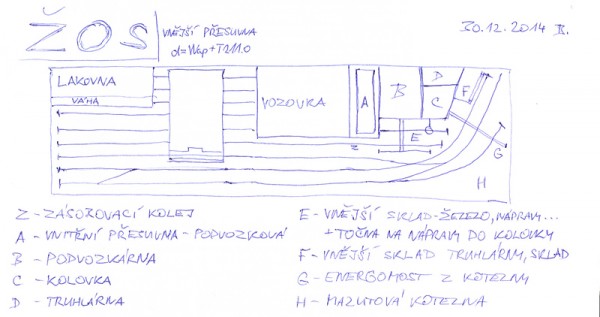 ŽOS
VNĚJŠÍ PŘESUVNA
30.12.2014
LAKOVNA
VÁHA
VOZOVKA
A
B
D
C
F
E
Z
G
H
Z - ZÁSOBOVACÍ KOLEJ
A - VNITŘNÍ PŘESUVNA - PODVOZKOVÁ
B - PODVOZKÁRNA
C - KOLOVKA
D - TRUHLÁRNA
E - VNĚJŠÍ SKLAD - ŽELEZO, NÁPRAVY...
+ TOČNA NA NÁPRAVY DO KOLOVKY
F - VNĚJŠÍ SKLAD TRUHLÁRNY, SKLAD
G - ENERGOMOST Z KOTELNY
H - MAZUTOVÁ KOTELNA